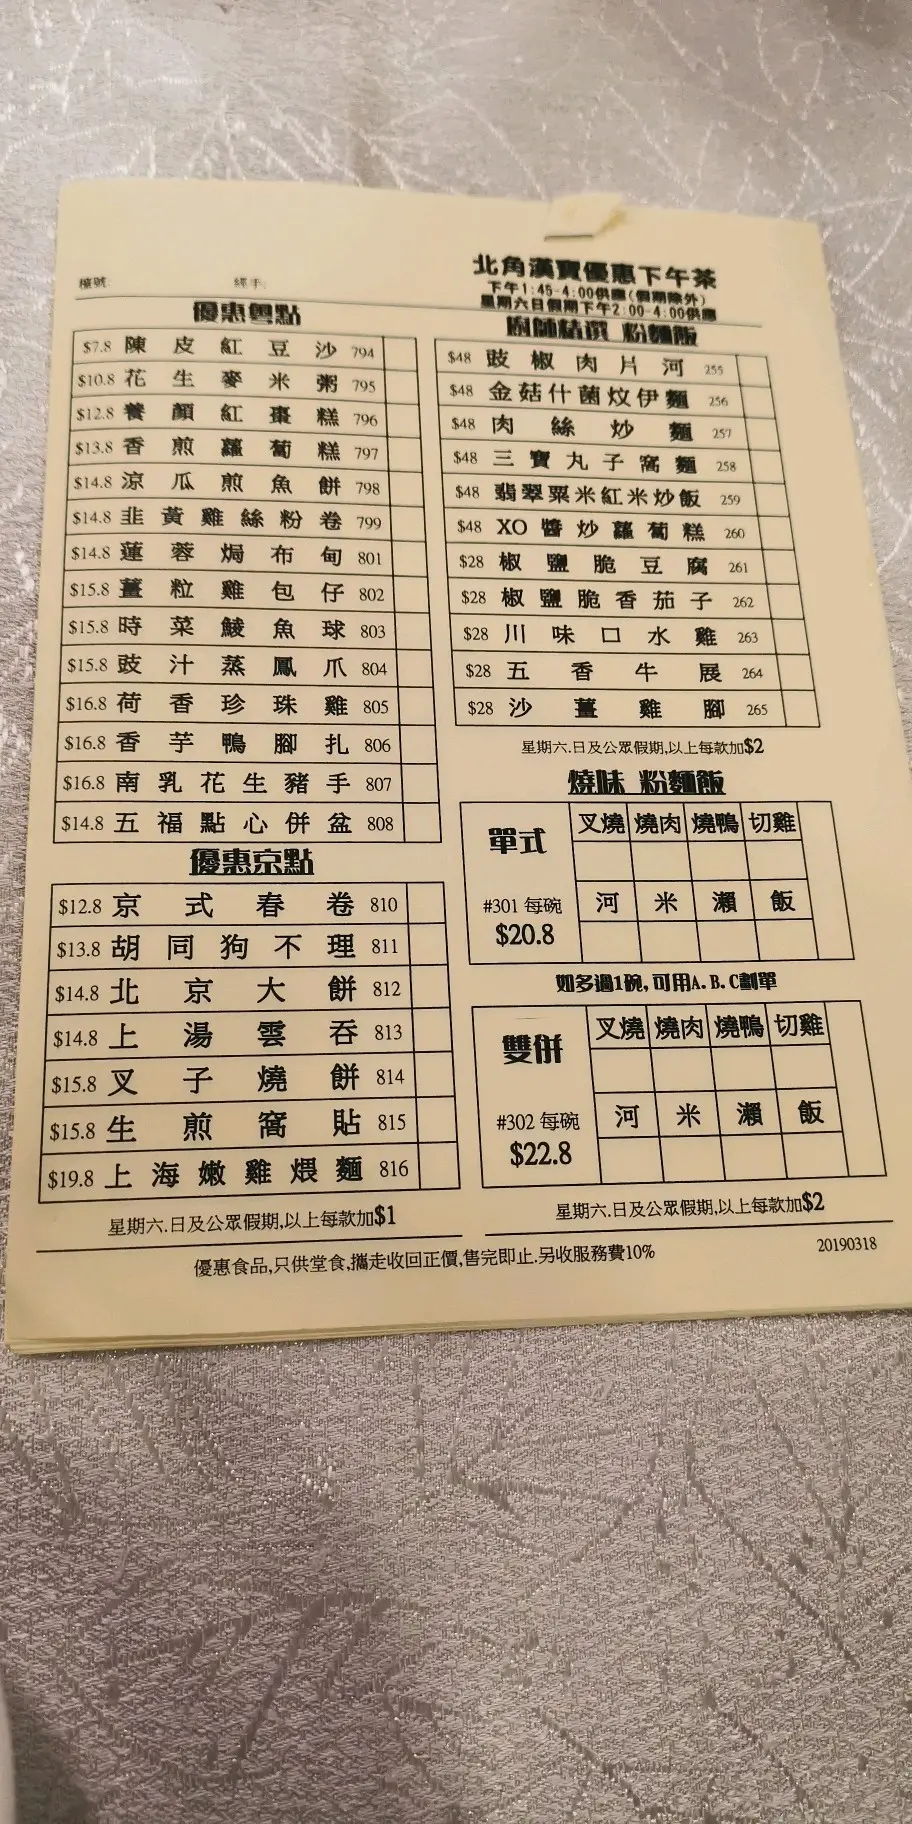 檯號:
經手:
北角漢寶優惠下午茶
下午1:45-4:00供應(假期除外)
星期六日假期下午2:00-4:00供應
優惠粵點
$7.8 陳皮紅豆沙 794
$10.8 花生麥米粥 795
$12.8 養顏紅棗糕 796
$13.8 香煎蘿蔔糕 797
$14.8 涼瓜煎魚餅 798
$14.8 韭黃雞絲粉卷 799
$14.8 蓮蓉焗布甸 801
$15.8 薑粒雞包仔 802
$15.8 時菜鯪魚球 803
$15.8 豉汁蒸鳳爪 804
$16.8 荷香珍珠雞 805
$16.8 香芋鴨腳扎 806
$16.8 南乳花生豬手 807
$14.8 五福點心併盆 808
優惠京點
$12.8 京式春卷 810
$13.8 胡同狗不理 811
$14.8 北京大餅 812
$14.8 上湯雲吞 813
$15.8 叉子燒餅 814
$15.8 生煎窩貼 815
$19.8 上海嫩雞煨麵 816
星期六.日及公眾假期,以上每款加$1
廚師精選 粉麵飯
$48 豉椒肉片河 255
$48 金菇什菌炆伊麵 256
$48 肉絲炒麵 257
$48 三寶丸子窩麵 258
$48 翡翠粟米紅米炒飯 259
$48 XO醬炒蘿蔔糕 260
$28 椒鹽脆豆腐 261
$28 椒鹽脆香茄子 262
$28 川味口水雞 263
$28 五香牛展 264
$28 沙薑雞腳 265
星期六.日及公眾假期,以上每款加$2
燒味 粉麵飯
單式
叉燒 燒肉 燒鴨 切雞
#301 每碗
$20.8
河 米 瀨 飯
如多過1碗,可用A.B.C劃單
雙併
叉燒 燒肉 燒鴨 切雞
#302 每碗
$22.8
河 米 瀨 飯
星期六.日及公眾假期,以上每款加$2
優惠食品,只供堂食,攜走收回正價,售完即止.另收服務費10%
20190318